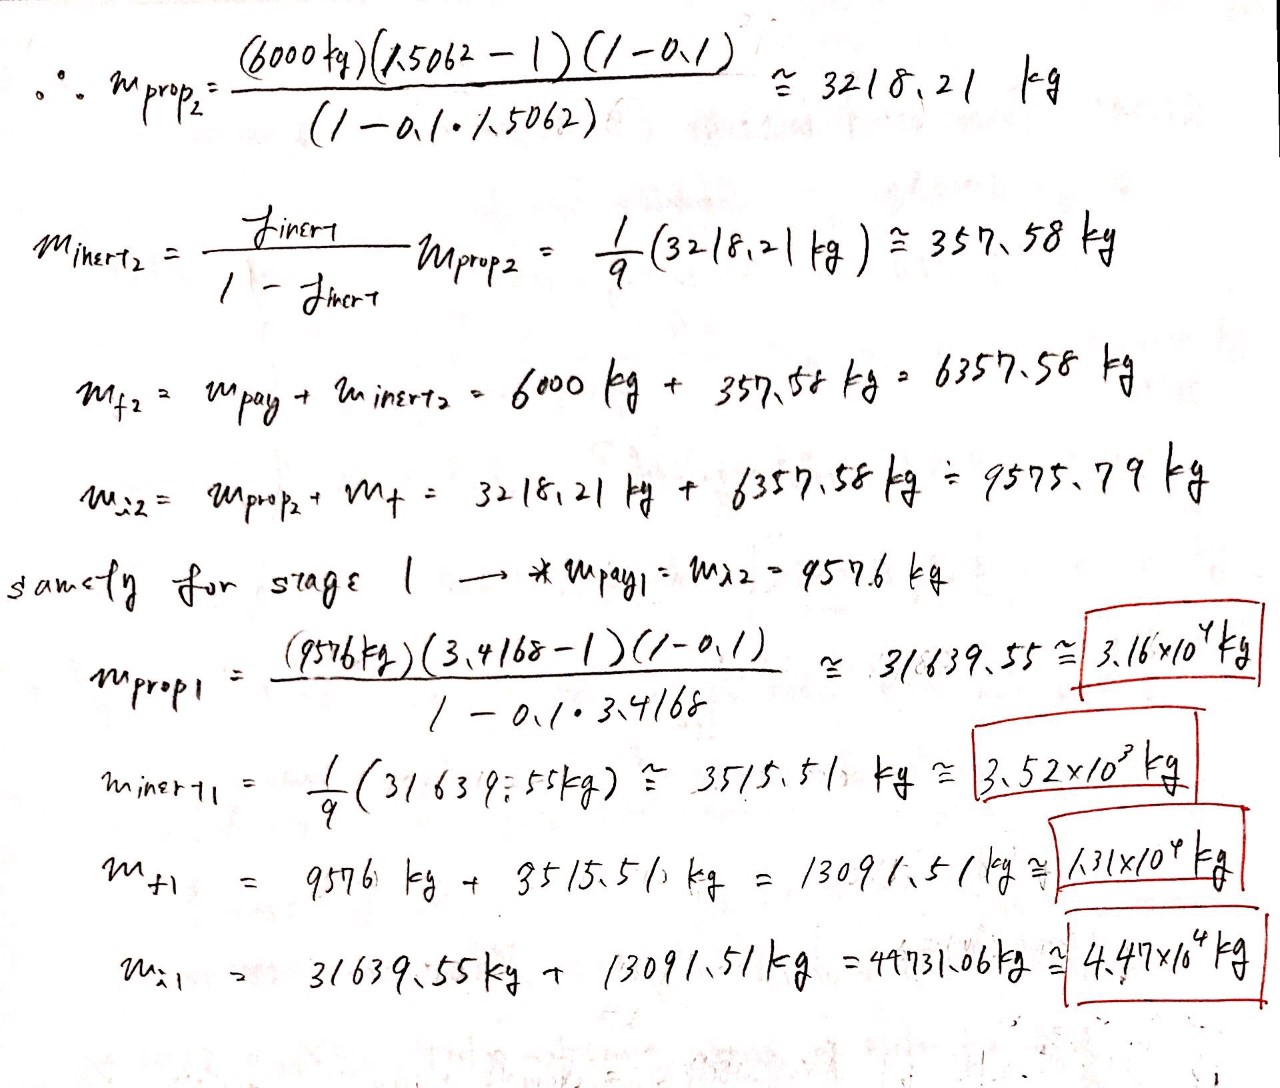 ∴ m prop₂ = (6000 kg)(1.5062 − 1)(1 − 0.1) / (1 − 0.1 · 1.5062) ≅ 3218.21 kg
m inert₂ = f inert / (1 − f inert) m prop₂ = 1/9 (3218.21 kg) ≅ 357.58 kg
m f₂ = m pay + m inert₂ = 6000 kg + 357.58 kg = 6357.58 kg
m i₂ = m prop₂ + m f = 3218.21 kg + 6357.58 kg ≒ 9575.79 kg
samely for stage 1 → * m pay₁ = m i₂ = 9576 kg
m prop₁ = (9576 kg)(3.4168 − 1)(1 − 0.1) / 1 − 0.1 · 3.4168 ≅ 31639.55 ≅ 3.16×10⁴ kg
m inert₁ = 1/9 (31639.55 kg) ≅ 3515.51 kg ≅ 3.52×10³ kg
m f₁ = 9576 kg + 3515.51 kg = 13091.51 kg ≅ 1.31×10⁴ kg
m i₁ = 31639.55 kg + 13091.51 kg = 44731.06 kg ≅ 4.47×10⁴ kg